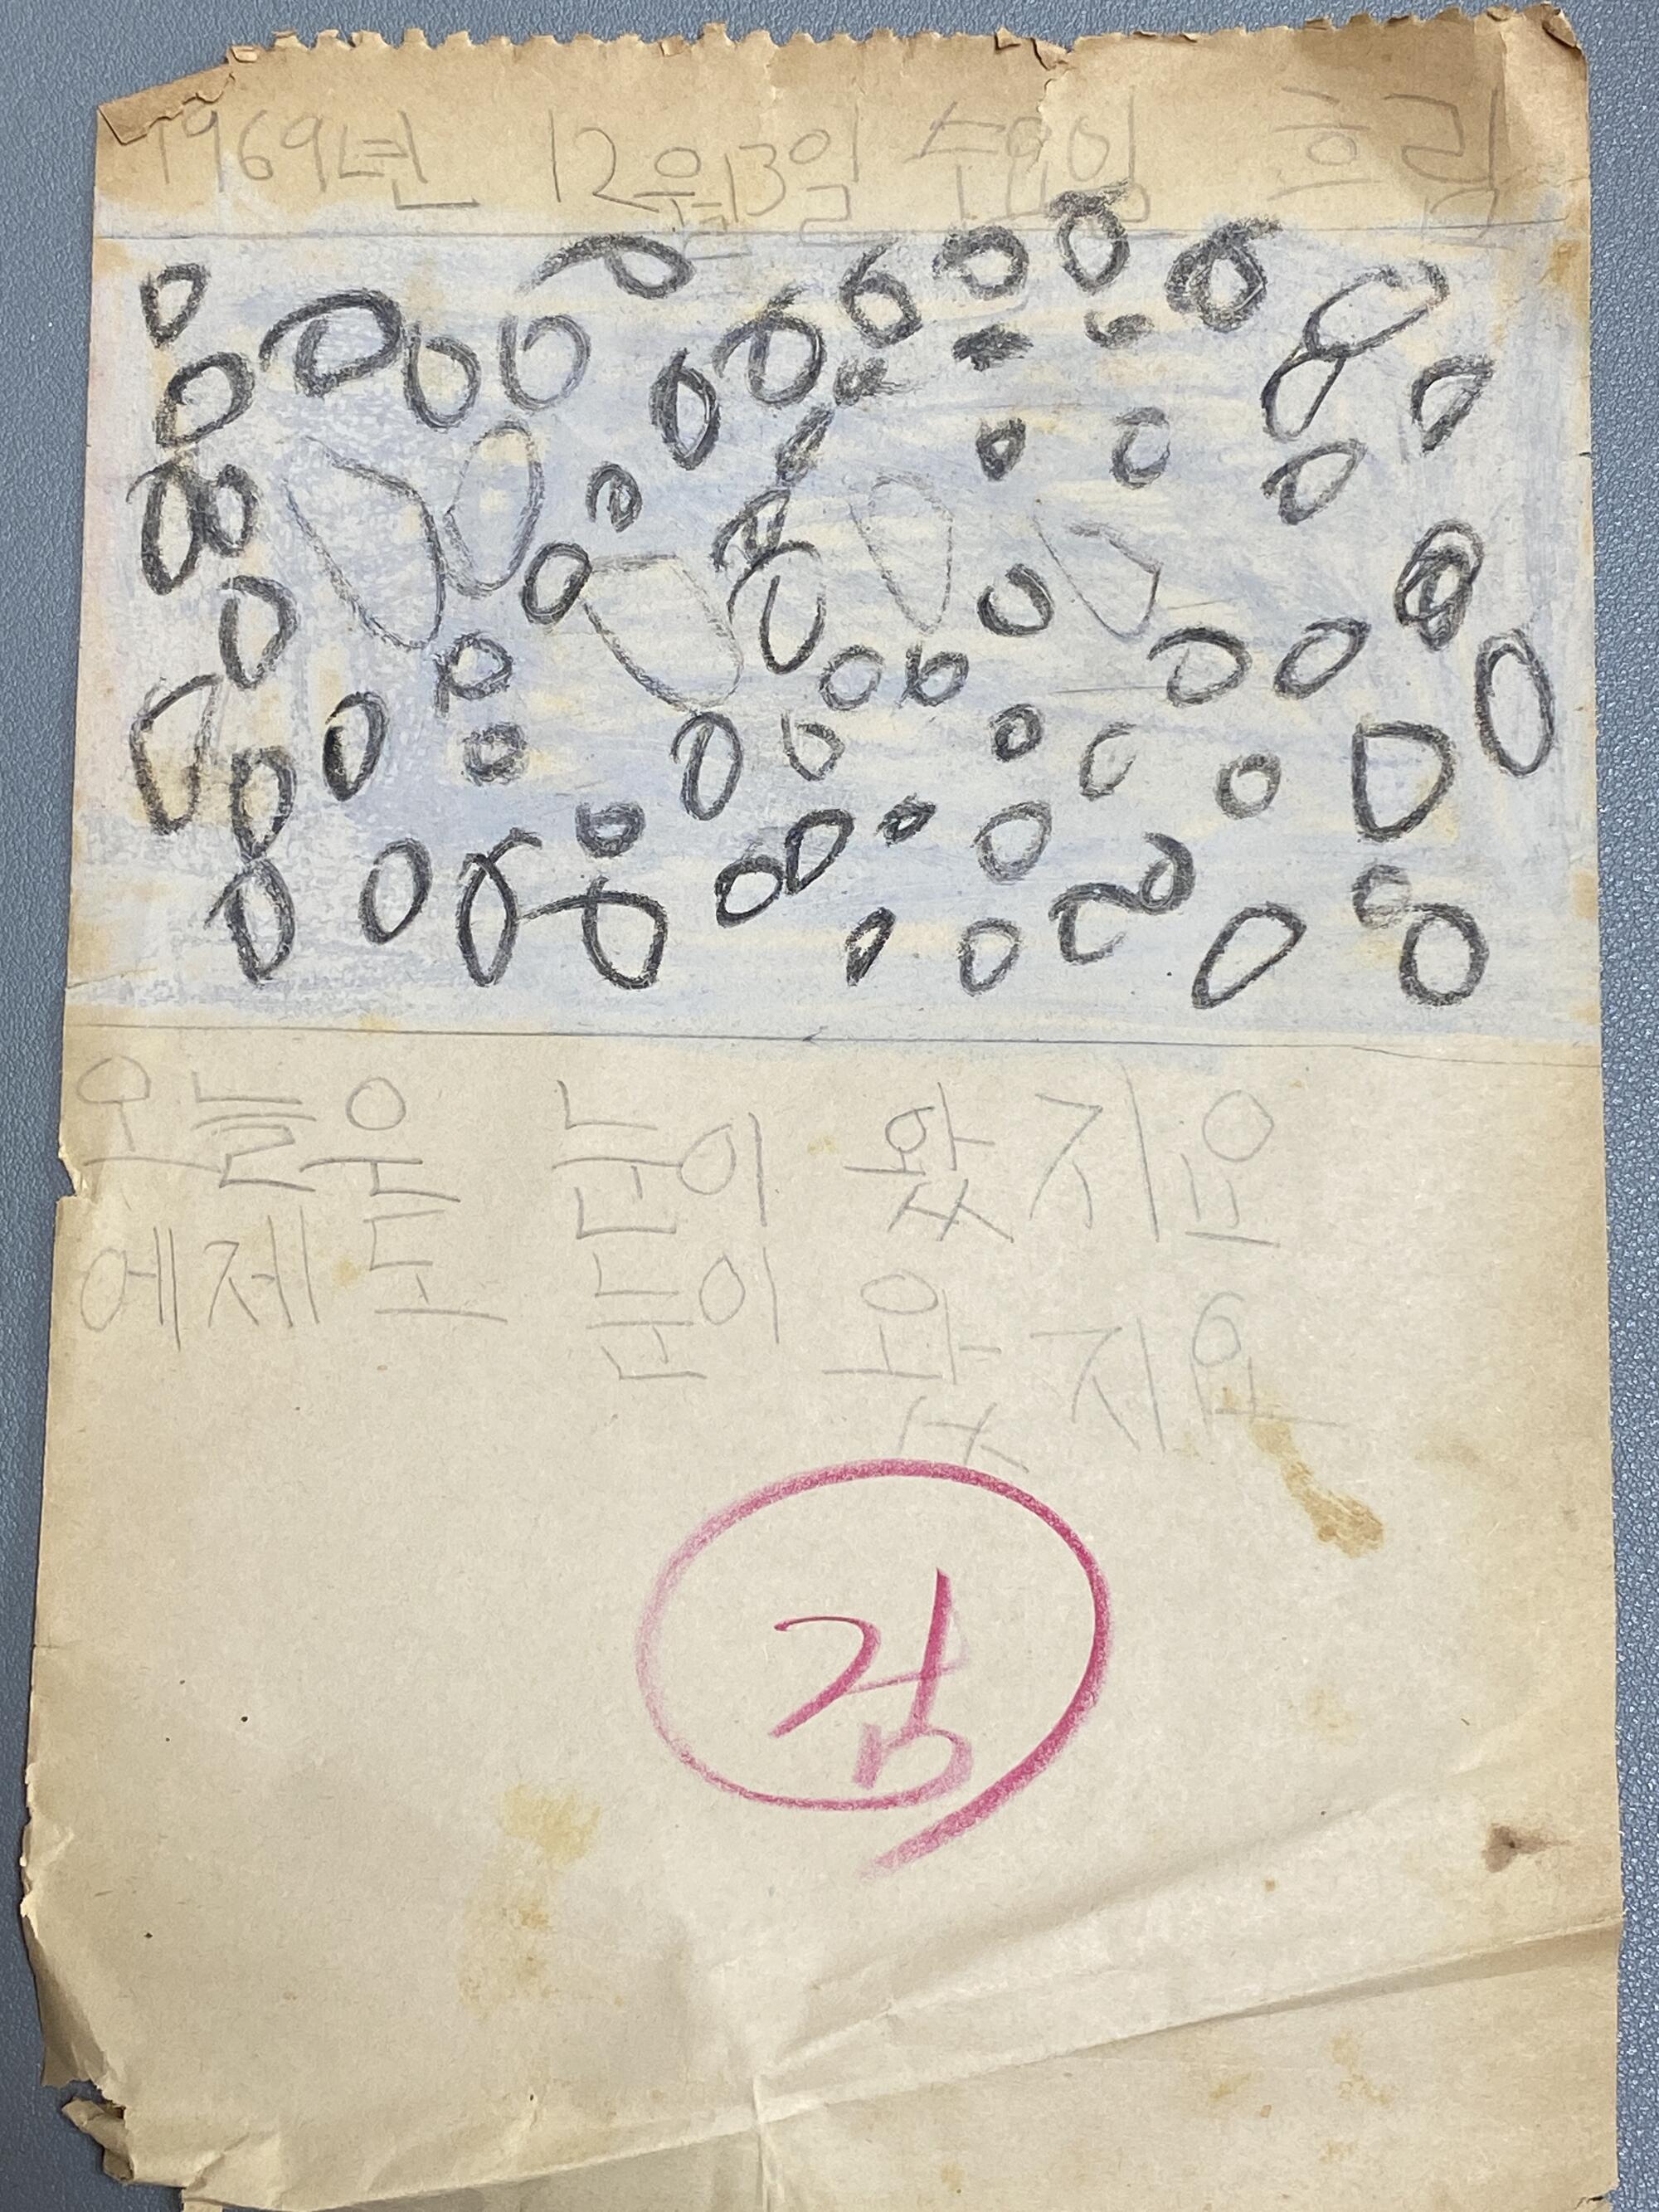 1969년 12월 3일 수요일 흐림
오늘은 눈이 왔지요
에제도 눈이 왔지요
검